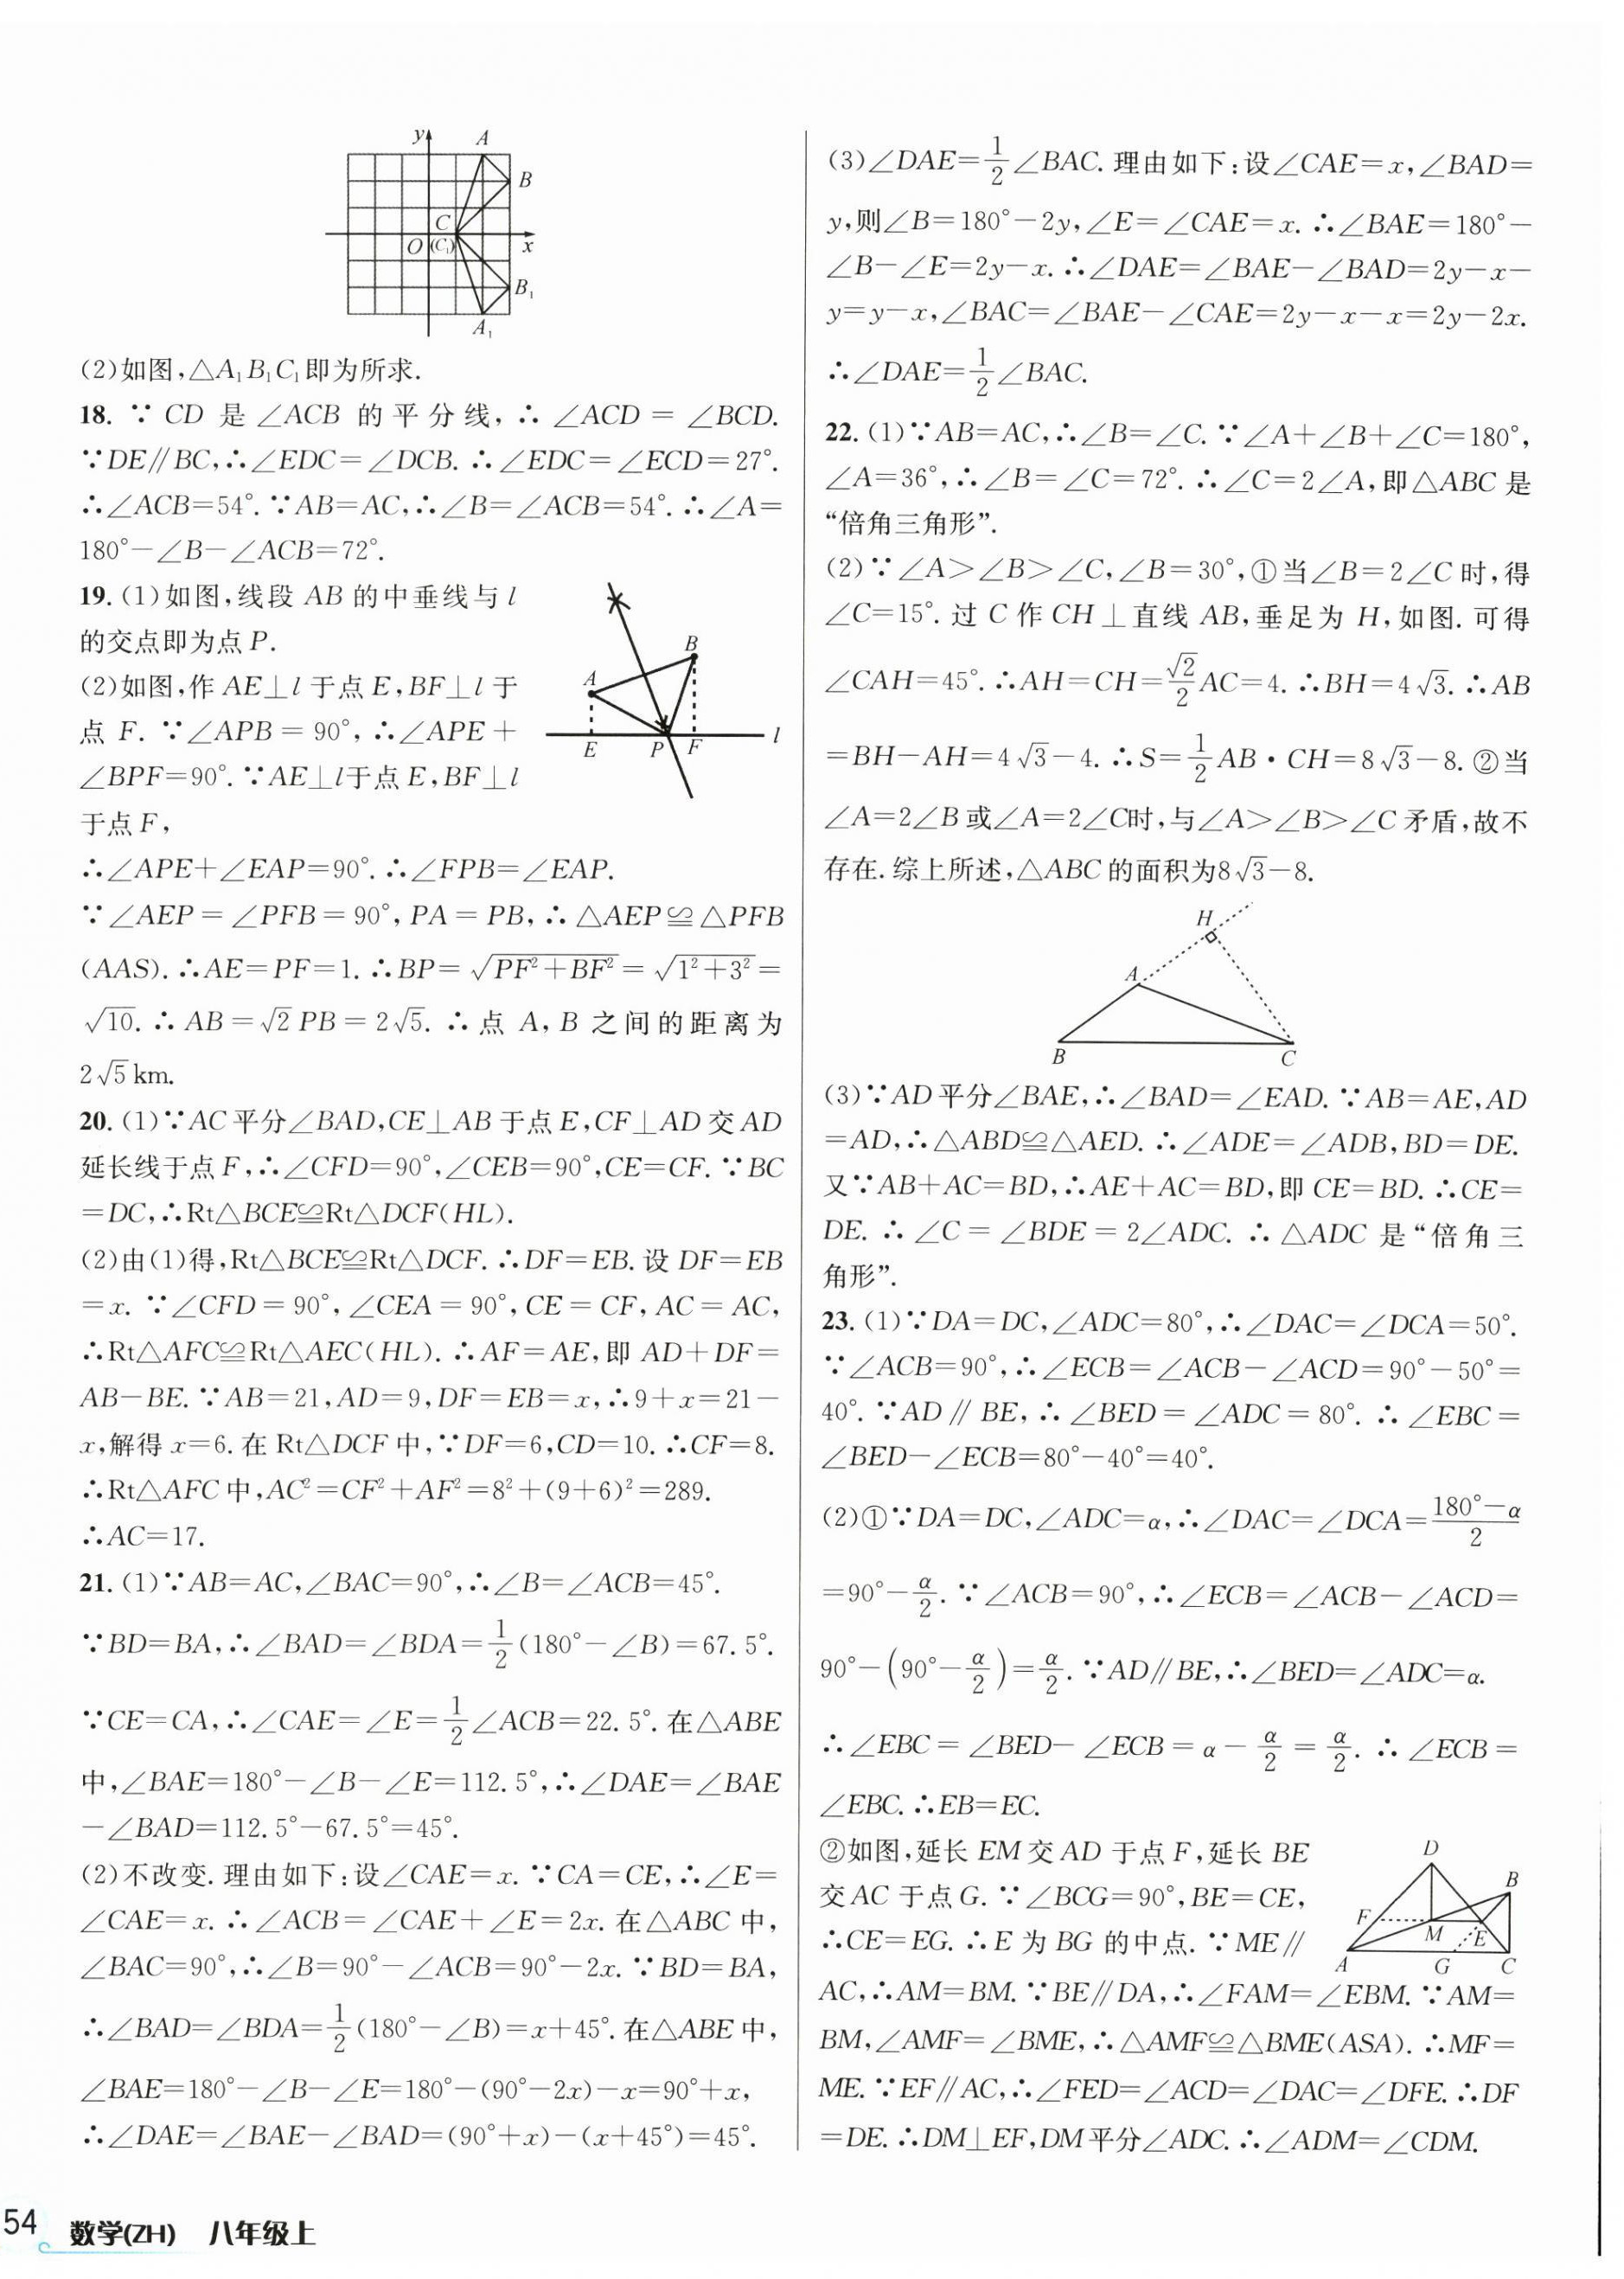 y A
B
C
O (C₁) x
B₁
A₁
(2)如图,△A₁B₁C₁即为所求.
18. ∵ CD 是 ∠ACB 的平分线, ∴ ∠ACD = ∠BCD.
∵DE∥BC,∴∠EDC=∠DCB. ∴∠EDC=∠ECD=27°.
∴∠ACB=54°. ∵AB=AC,∴∠B=∠ACB=54°. ∴∠A=
180°-∠B-∠ACB=72°.
19. (1)如图,线段 AB 的中垂线与 l
的交点即为点 P.
(2)如图,作 AE⊥l 于点 E,BF⊥l 于
点 F. ∵∠APB = 90°, ∴∠APE +
∠BPF=90°. ∵AE⊥l于点 E,BF⊥l
于点 F,
B
A
E P F l
∴∠APE+∠EAP=90°. ∴∠FPB=∠EAP.
∵∠AEP = ∠PFB = 90°, PA = PB, ∴ △AEP≌△PFB
(AAS). ∴AE=PF=1. ∴BP= √(PF²+BF²) = √(1²+3²) =
√10. ∴ AB = √2 PB = 2√5. ∴ 点 A, B 之间的距离为
2√5 km.
20. (1)∵AC 平分∠BAD,CE⊥AB 于点 E,CF⊥AD 交 AD
延长线于点 F,∴∠CFD=90°,∠CEB=90°,CE=CF. ∵BC
=DC,∴Rt△BCE≌Rt△DCF(HL).
(2)由(1)得,Rt△BCE≌Rt△DCF. ∴DF=EB. 设 DF=EB
=x. ∵∠CFD = 90°, ∠CEA = 90°, CE = CF, AC = AC,
∴Rt△AFC≌Rt△AEC(HL). ∴AF=AE,即 AD+DF=
AB-BE. ∵AB=21,AD=9,DF=EB=x,∴9+x=21-
x,解得 x=6. 在 Rt△DCF 中,∵DF=6,CD=10. ∴CF=8.
∴Rt△AFC 中,AC²=CF²+AF²=8²+(9+6)²=289.
∴AC=17.
21. (1)∵AB=AC,∠BAC=90°,∴∠B=∠ACB=45°.
∵BD=BA,∴∠BAD=∠BDA=1/2(180°-∠B)=67.5°.
∵CE=CA,∴∠CAE=∠E=1/2∠ACB=22.5°. 在△ABE
中,∠BAE=180°-∠B-∠E=112.5°,∴∠DAE=∠BAE
-∠BAD=112.5°-67.5°=45°.
(2)不改变. 理由如下:设∠CAE=x. ∵CA=CE,∴∠E=
∠CAE=x. ∴∠ACB=∠CAE+∠E=2x. 在△ABC 中,
∠BAC=90°,∴∠B=90°-∠ACB=90°-2x. ∵BD=BA,
∴∠BAD=∠BDA=1/2(180°-∠B)=x+45°. 在△ABE 中,
∠BAE=180°-∠B-∠E=180°-(90°-2x)-x=90°+x,
∴∠DAE=∠BAE-∠BAD=(90°+x)-(x+45°)=45°.
(3)∠DAE=1/2∠BAC. 理由如下:设∠CAE=x,∠BAD=
y,则∠B=180°-2y,∠E=∠CAE=x. ∴∠BAE=180°-
∠B-∠E=2y-x. ∴∠DAE=∠BAE-∠BAD=2y-x-
y=y-x,∠BAC=∠BAE-∠CAE=2y-x-x=2y-2x.
∴∠DAE=1/2∠BAC.
22. (1)∵AB=AC,∴∠B=∠C. ∵∠A+∠B+∠C=180°,
∠A=36°,∴∠B=∠C=72°. ∴∠C=2∠A,即△ABC 是
“倍角三角形”.
(2)∵∠A>∠B>∠C,∠B=30°,①当∠B=2∠C 时,得
∠C=15°. 过 C 作 CH⊥直线 AB,垂足为 H,如图. 可得
∠CAH=45°. ∴AH=CH=√2/2 AC=4. ∴BH=4√3. ∴AB
=BH-AH=4√3-4. ∴S=1/2 AB·CH=8√3-8. ②当
∠A=2∠B 或∠A=2∠C时,与∠A>∠B>∠C 矛盾,故不
存在. 综上所述,△ABC 的面积为8√3-8.
H
A
B C
(3)∵AD 平分∠BAE,∴∠BAD=∠EAD. ∵AB=AE,AD
=AD,∴△ABD≌△AED. ∴∠ADE=∠ADB,BD=DE.
又∵AB+AC=BD,∴AE+AC=BD,即 CE=BD. ∴CE=
DE. ∴∠C = ∠BDE = 2∠ADC. ∴ △ADC 是“倍角三
角形”.
23. (1)∵DA=DC,∠ADC=80°,∴∠DAC=∠DCA=50°.
∵∠ACB=90°,∴∠ECB=∠ACB-∠ACD=90°-50°=
40°. ∵AD∥BE,∴∠BED=∠ADC=80°. ∴∠EBC=
∠BED-∠ECB=80°-40°=40°.
(2)①∵DA=DC,∠ADC=α,∴∠DAC=∠DCA=(180°-α)/2
=90°-α/2. ∵∠ACB=90°,∴∠ECB=∠ACB-∠ACD=
90°-(90°-α/2)=α/2. ∵AD∥BE,∴∠BED=∠ADC=α.
∴∠EBC=∠BED-∠ECB=α-α/2=α/2. ∴∠ECB=
∠EBC. ∴EB=EC.
②如图,延长 EM 交 AD 于点 F,延长 BE
交 AC 于点 G. ∵∠BCG=90°,BE=CE,
∴CE=EG. ∴E 为 BG 的中点. ∵ME∥
D
B
F
M E
A G C
AC,∴AM=BM. ∵BE∥DA,∴∠FAM=∠EBM. ∵AM=
BM,∠AMF=∠BME,∴△AMF≌△BME(ASA). ∴MF=
ME. ∵EF∥AC,∴∠FED=∠ACD=∠DAC=∠DFE. ∴DF
=DE. ∴DM⊥EF,DM 平分∠ADC. ∴∠ADM=∠CDM.
54 数学(ZH) 八年级上